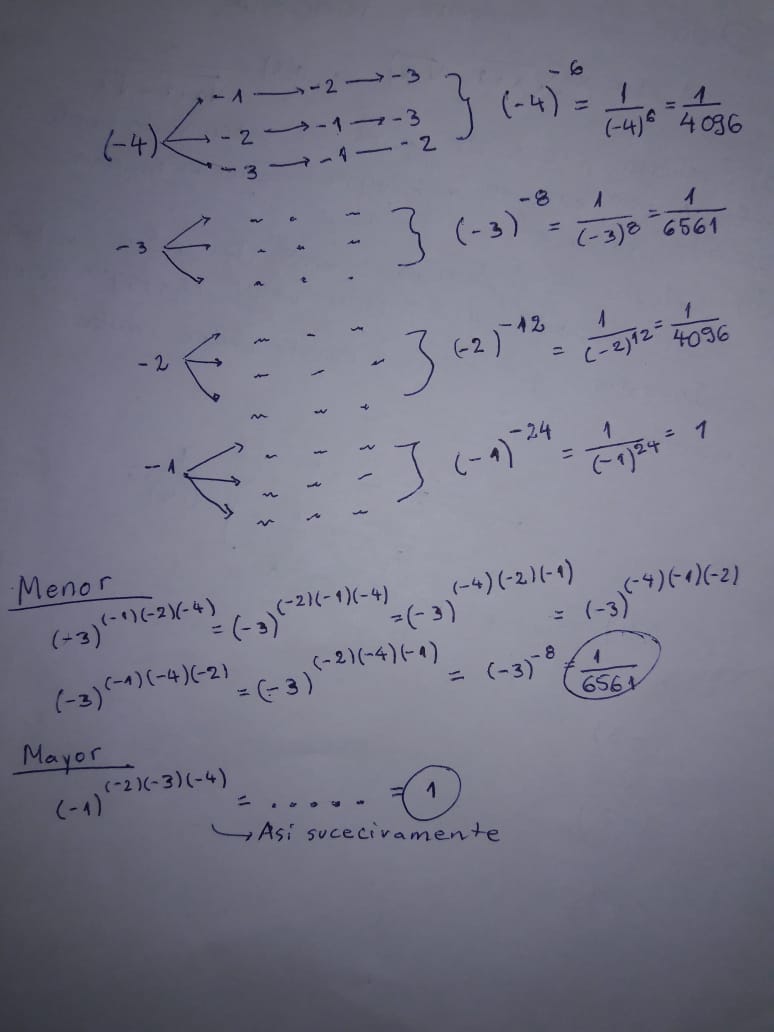 (-4) -1 → -2 → -3
-2 → -1 → -3
-3 → -1 — -2
} (-4)^-6 = 1/(-4)^6 = 1/4096
-3 } (-3)^-8 = 1/(-3)^8 = 1/6561
-2 } (-2)^-12 = 1/(-2)^12 = 1/4096
-1 } (-1)^-24 = 1/(-1)^24 = 1
Menor
(-3)^(-1)(-2)(-4) = (-3)^(-2)(-1)(-4) = (-3)^(-4)(-2)(-1) = (-3)^(-4)(-1)(-2)
(-3)^(-1)(-4)(-2) = (-3)^(-2)(-4)(-1) = (-3)^-8 = 1/6561
Mayor
(-1)^(-2)(-3)(-4) = ..... = 1
→ Asi sucecivamente